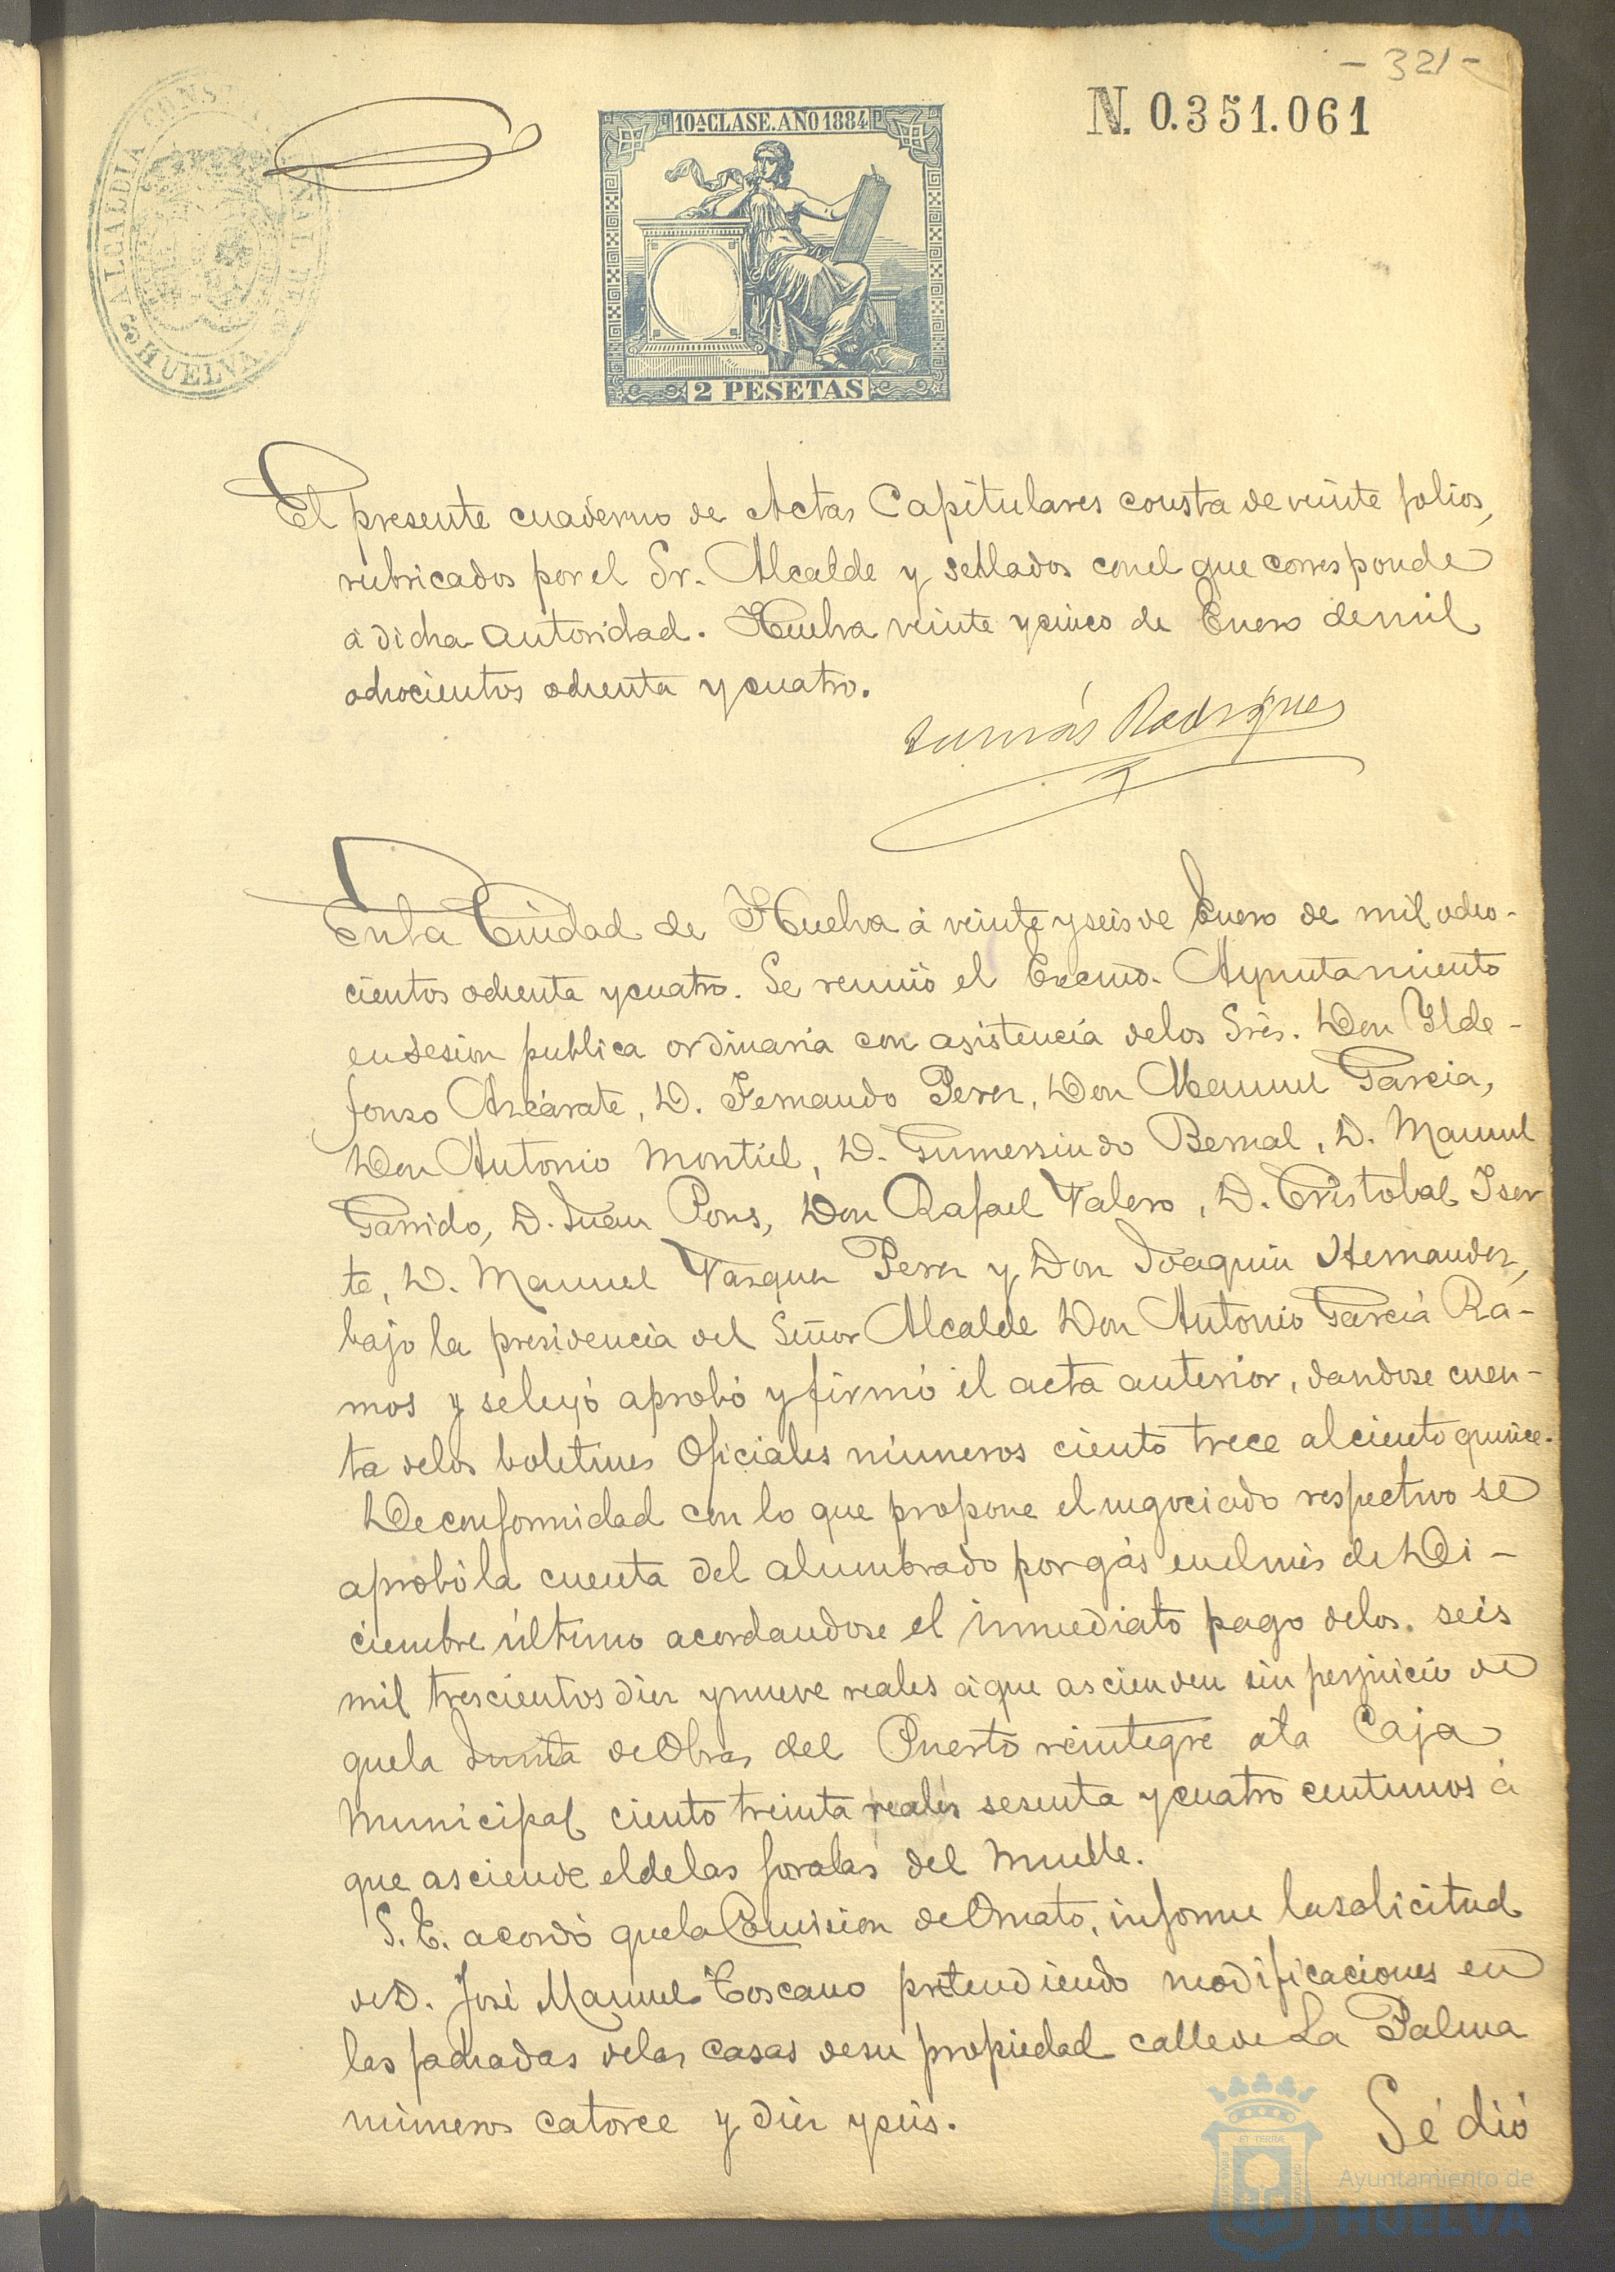 - 321 -
N. 0.351.061
ALCALDIA CONSTITUCIONAL DE
HUELVA
10ª CLASE. AÑO 1884
2 PESETAS
El presente cuaderno de Actas Capitulares consta de veinte folios,
rubricados por el Sr. Alcalde y sellados con el que corresponde
á dicha autoridad. Huelva veinte y cinco de Enero de mil
ochocientos ochenta y cuatro.
Tomás Rodriguez
En la Ciudad de Huelva á veinte y seis de Enero de mil ocho-
cientos ochenta y cuatro. Se reunió el Excmo. Ayuntamiento
en sesion publica ordinaria con asistencia de los Sres. Don Ylde-
fonso Azcárate, D. Fernando Perez, Don Manuel Garcia,
Don Antonio Montiel, D. Gumersindo Bernal, D. Manuel
Garrido, D. Juan Pons, Don Rafael Valero, D. Cristobal Iser
te, D. Manuel Vazquez Perez y Don Joaquin Hernandez,
bajo la presidencia del Señor Alcalde Don Antonio Garcia Ra-
mos y se leyó aprobó y firmó el acta anterior, dandose cuen-
ta de los boletines Oficiales números ciento trece al ciento quince.
De conformidad con lo que propone el negociado respectivo se
aprobó la cuenta del alumbrado por gás en el mes de Di-
ciembre último acordandose el inmediato pago de los seis
mil trescientos diez y nueve reales á que ascienden sin perjuicio de
que la Junta de Obras del Puerto reintegre á la Caja
Municipal ciento treinta reales sesenta y cuatro centimos á
que asciende el de las farolas del Muelle.
S. E. acordó que la Comision de Ornato, informe la solicitud
de D. José Manuel Toscano pretendiendo modificaciones en
las fachadas de las casas de su propiedad calle de La Palma
números catorce y diez y seis.
Se dió
Ayuntamiento de
HUELVA